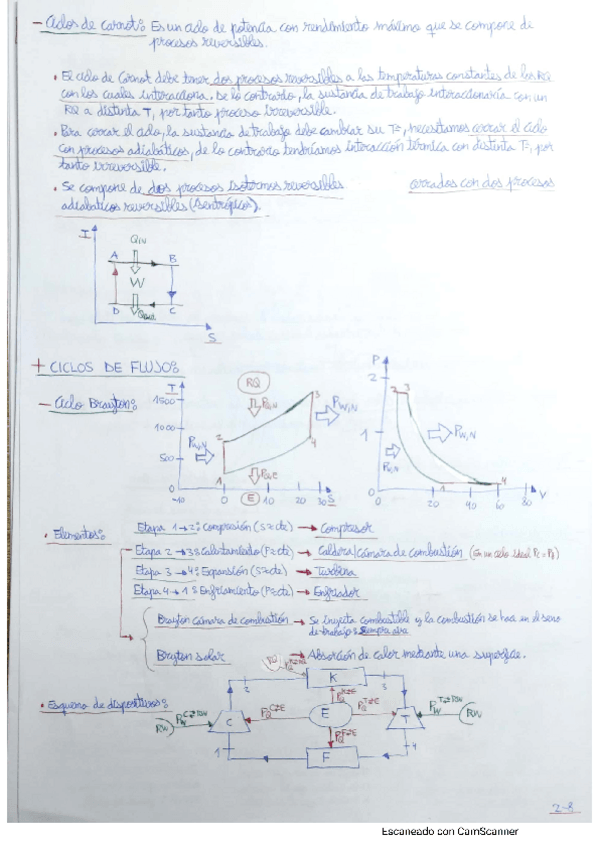 - Ciclos de Carnot: Es un ciclo de potencia con rendimiento máximo que se compone de
procesos reversibles.
• El ciclo de Carnot debe tener dos procesos reversibles a las temperaturas constantes de los RQ
con los cuales interacciona. De lo contrario, la sustancia de trabajo interaccionaría con un
RQ a distinta T, por tanto proceso irreversible.
• Para cerrar el ciclo, la sustancia de trabajo debe cambiar su Tª, necesitamos cerrar el ciclo
con procesos adiabáticos, de lo contrario tendríamos interacción térmica con distinta Tª, por
tanto irreversible.
• Se compone de dos procesos isotermos reversibles cerrados con dos procesos
adiabáticos reversibles (Isentrópicos).
T
QIN
A B
W
D C
S
+ CICLOS DE FLUJO:
- Ciclo Brayton:
T
1500
1000
500
0
-10 0 10 20 30 S
RQ
3
2
4
1
E
P
2
1
0
2 3
1 4
0 20 40 60 80 V
• Elementos:
Etapa 1→2: Compresión (S≈cte) → Compresor
Etapa 2→3: Calentamiento (P≈cte) → Caldera/Cámara de combustión
Etapa 3→4: Expansión (S≈cte) → Turbina
Etapa 4→1: Enfriamiento (P≈cte) → Enfriador
Brayton cámara de combustión → Se inyecta combustible y la combustión se hace en el seno
de trabajo: Siempre aire
Brayton solar → Absorción de calor mediante una superficie.
• Esquema de dispositivos:
2 K 3
RW C E T RW
1 F 4
2-8
Escaneado con CamScanner